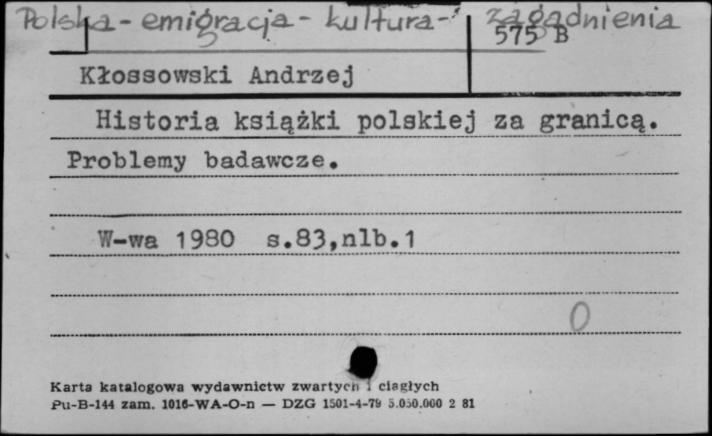 Polska - emigracja - kultura - zagadnienia
575 B
Kłossowski Andrzej
Historia książki polskiej za granicą.
Problemy badawcze.
W-wa 1980 s.83,nlb.1
0
Karta katalogowa wydawnictw zwartych i ciągłych
Pu-B-144 zam. 1016-WA-O-n — DZG 1501-4-79 5.050.000 2 81